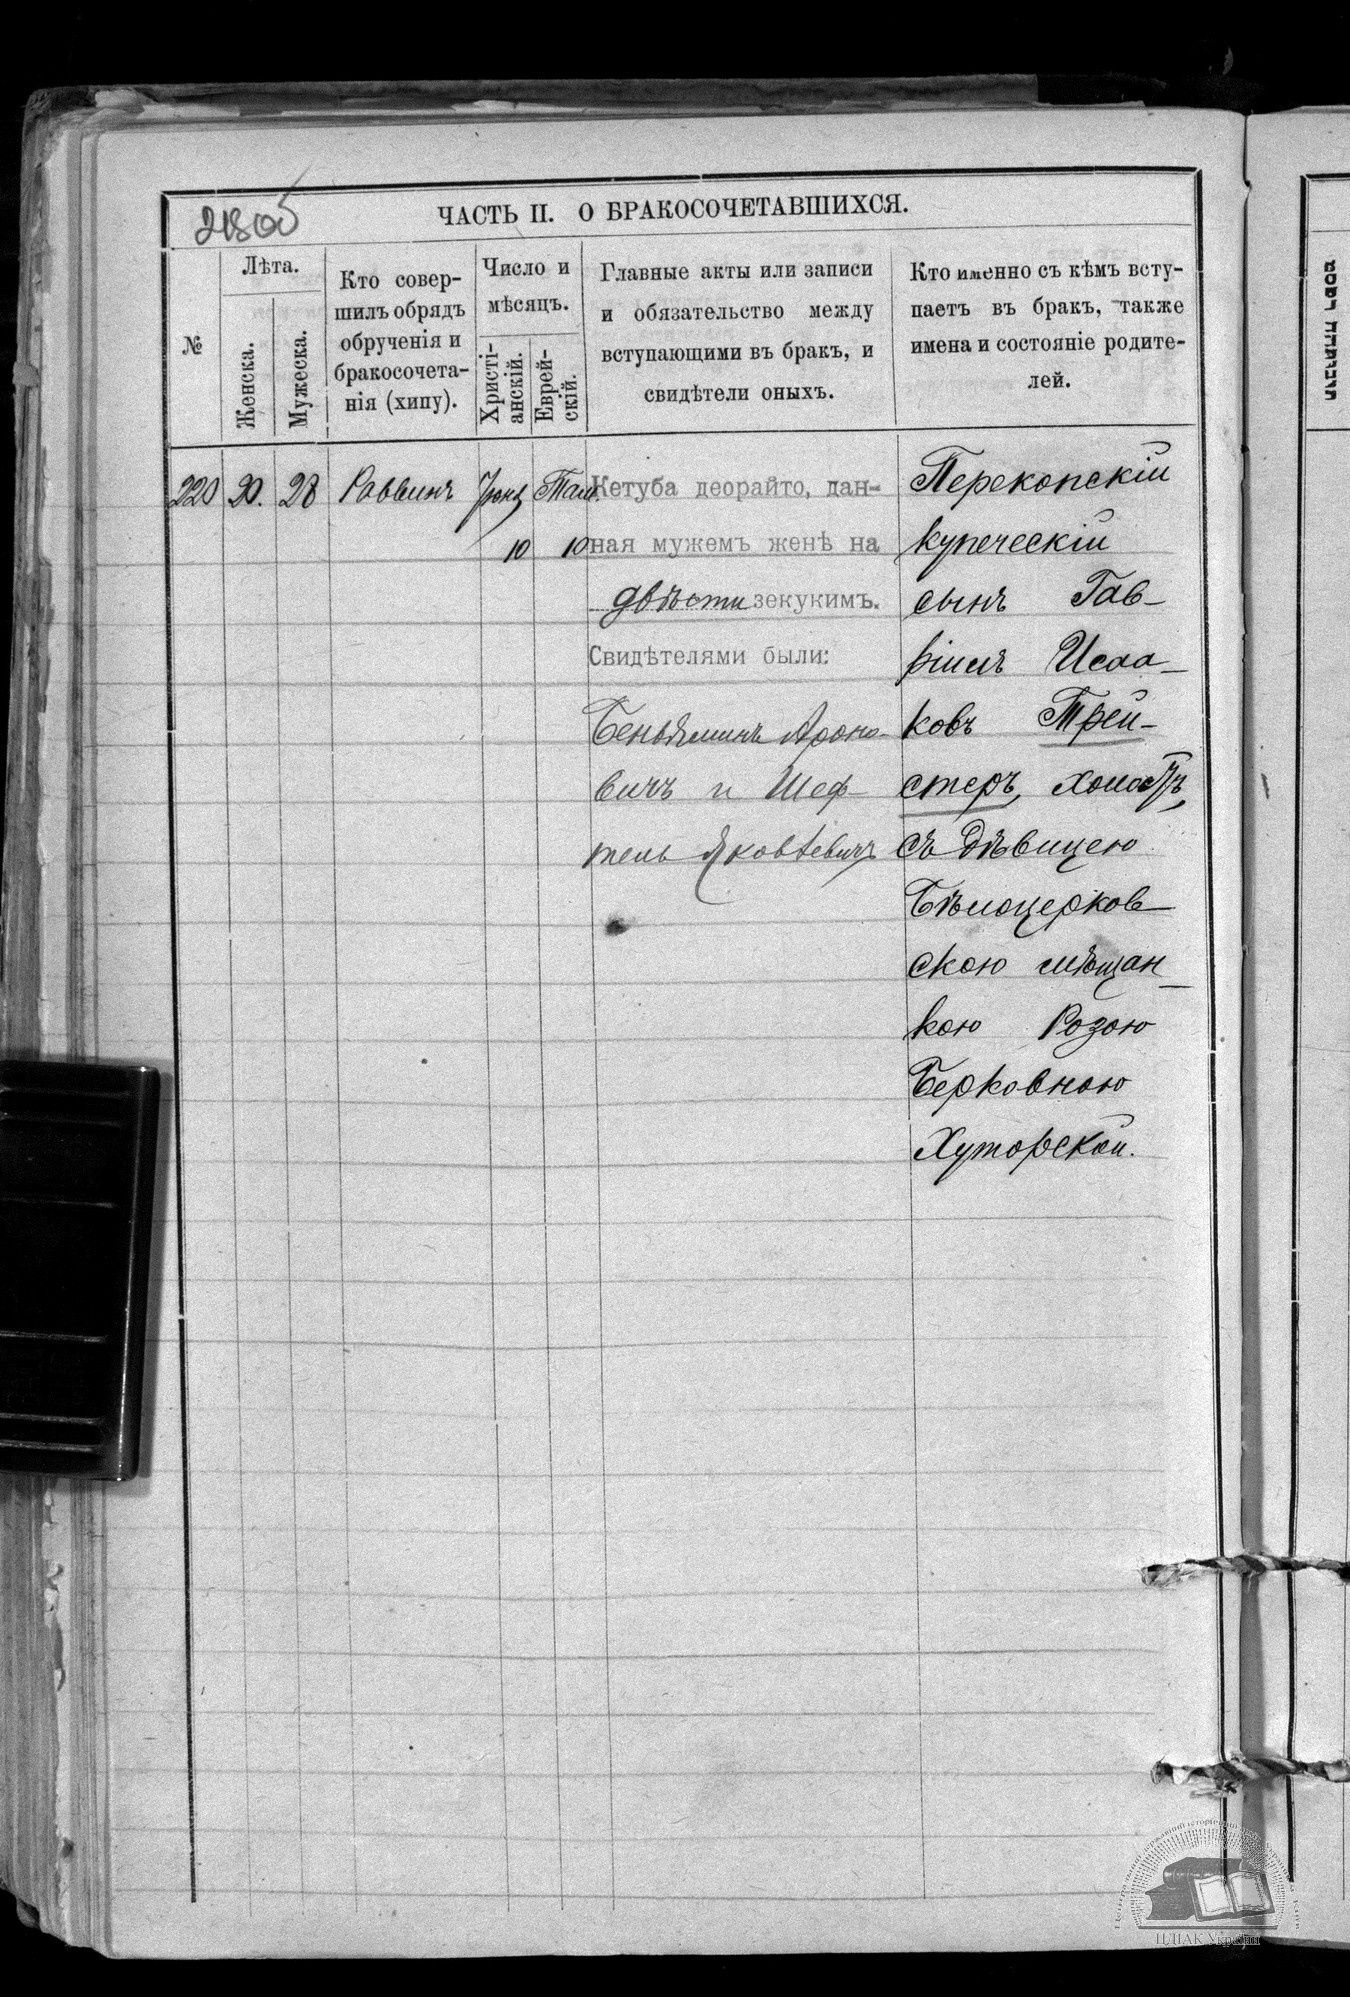 218об
ЧАСТЬ II. О БРАКОСОЧЕТАВШИХСЯ.
№
Лѣта.
Женска.
Мужеска.
Кто совер-
шилъ обрядъ
обрученія и
бракосочета-
нія (хипу).
Число и
мѣсяцъ.
Христі-
анскій.
Еврей-
скій.
Главные акты или записи
и обязательство между
вступающими въ бракъ, и
свидѣтели оныхъ.
Кто именно съ кѣмъ всту-
паетъ въ бракъ, также
имена и состояніе родите-
лей.
220 20. 28 Раввинъ
10 10
Кетуба деорайто, дан-
ная мужемъ женѣ на
двѣсти зекукимъ.
Свидѣтелями были:
Беньяминъ Ароно-
вичъ и Шеф-
тель Яковлевичъ
Перекопскій
купеческій
сынъ Гав-
ріилъ Исаа-
ковъ Трей-
стеръ, холостъ,
съ дѣвицею
Бѣлоцерков-
скою мѣщан-
кою Розою
Берковною
Хуторской.
ЦДІАК України